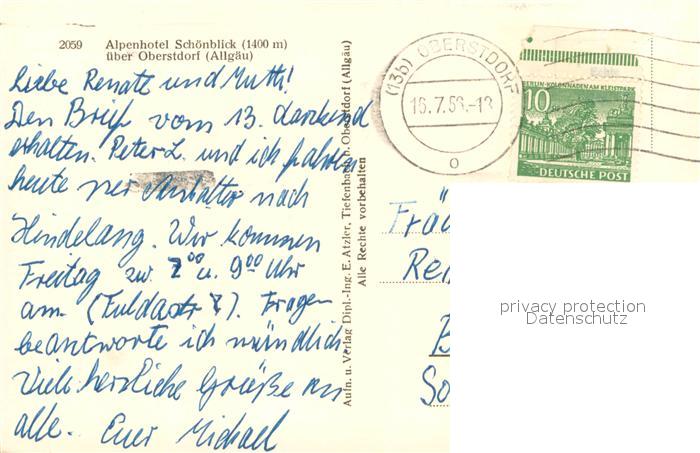 2059 Alpenhotel Schönblick (1400 m)
über Oberstdorf (Allgäu)
Liebe Renate und Mutti!
Den Brief vom 13. dankend
erhalten. Peter L. und ich fahren
heute per Anhalter nach
Hindelang. Wir kommen
Freitag zw. 7⁰⁰ u. 9⁰⁰ Uhr
am (Fuldastr 7). Fragen
beantworte ich mündlich
Viele herzliche Grüße an
alle. Euer Michael
Aufn. u. Verlag Dipl.-Ing. E. Atzler, Tiefenbach b. Oberstdorf (Allgäu)
Alle Rechte vorbehalten
(13b) OBERSTDORF
16.7.56.-18
o
BERLIN · KOLONNADEN AM KLEISTPARK
10
DEUTSCHE POST
Fräu
Re
B
So
privacy protection
Datenschutz